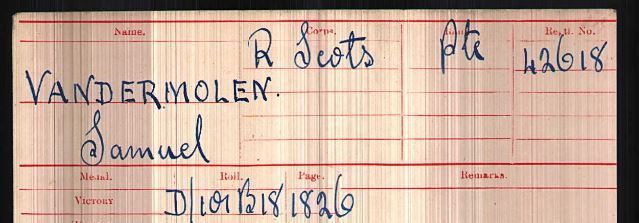 Name. Corps. Rank. Regtl. No.
R Scots Pte 42618
VANDERMOLEN.
Samuel
Medal. Roll. Page. Remarks.
Victory D/101 B18 1826